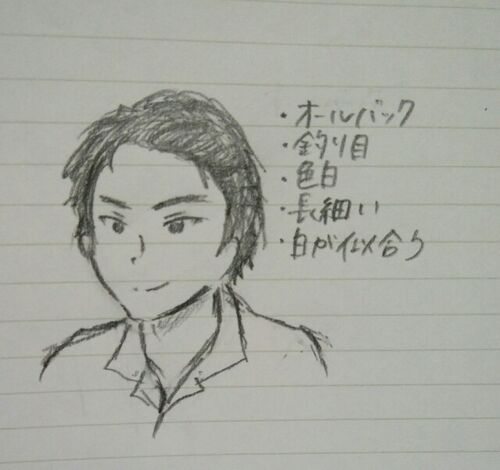 ・オールバック
・釣り目
・色白
・長細い
・白が似合う